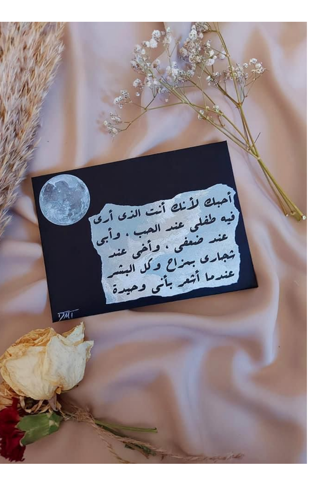 أحبك لأنك أنت الذى أرى
فيه طفلى عند الحب ، وأبى
عند ضعفى ، وأخى عند
شجارى بمزاح وكل البشر
عندما أشعر بأنى وحيدة